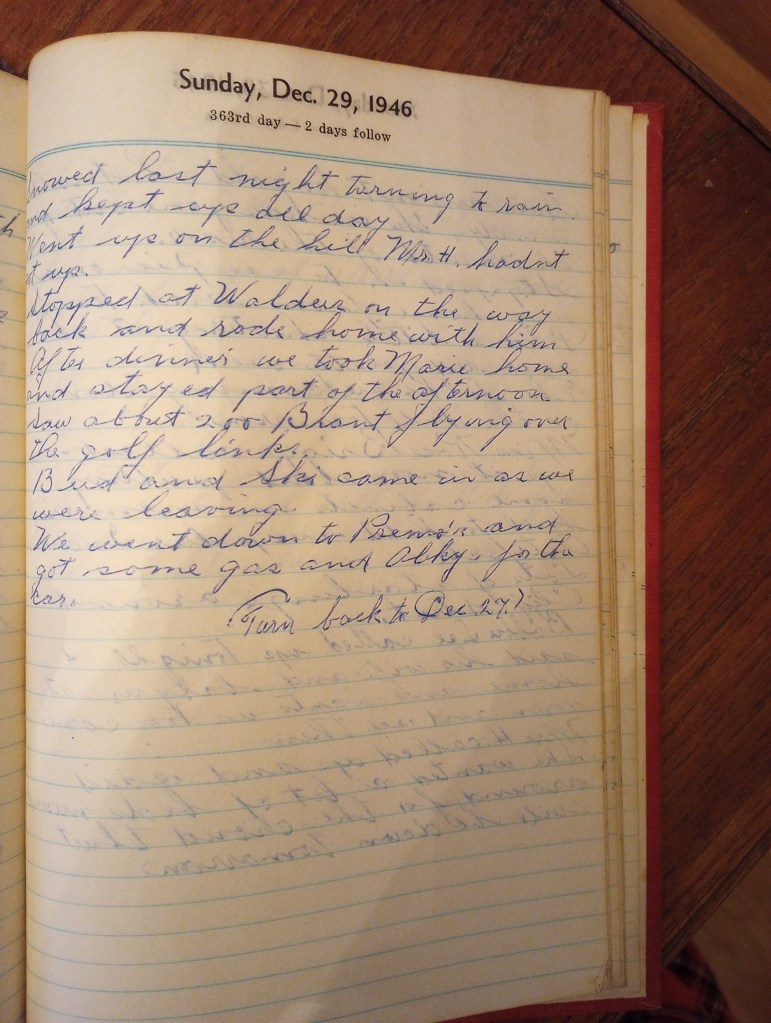 Sunday, Dec. 29, 1946
363rd day — 2 days follow
nowed last night turning to rain
nd kept up all day
Went up on the hill Mrs. H. hadnt
t up.
Stopped at Waldens on the way
back and rode home with him
After dinner we took Marie home
and stayed part of the afternoon
Saw about 200 Brant flying over
the golf links.
Bud and Ski came in as we
were leaving.
We went down to and
got some gas and Alky. for the
car.
(Turn back to Dec 27.)